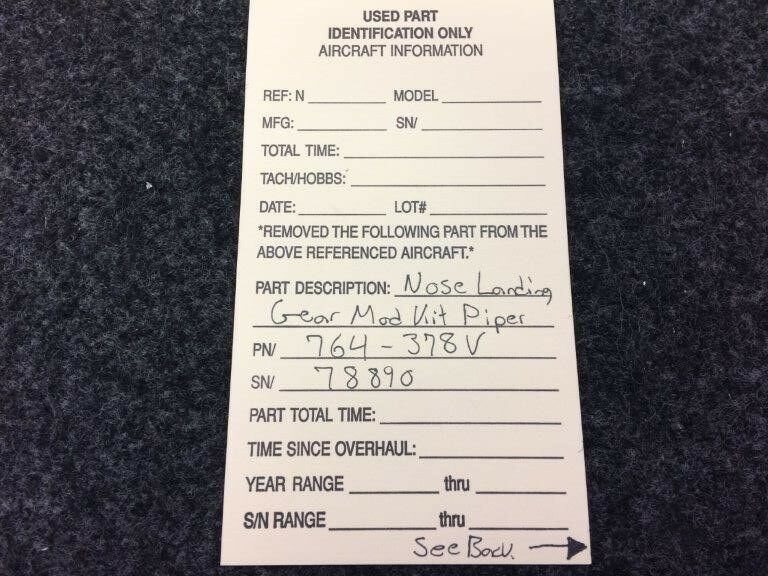 USED PART
IDENTIFICATION ONLY
AIRCRAFT INFORMATION
REF: N MODEL
MFG: SN/
TOTAL TIME:
TACH/HOBBS:
DATE: LOT#
*REMOVED THE FOLLOWING PART FROM THE
ABOVE REFERENCED AIRCRAFT.*
PART DESCRIPTION: Nose Landing
Gear Mod Kit Piper
PN/ 764-378V
SN/ 78890
PART TOTAL TIME:
TIME SINCE OVERHAUL:
YEAR RANGE thru
S/N RANGE thru
See Back.